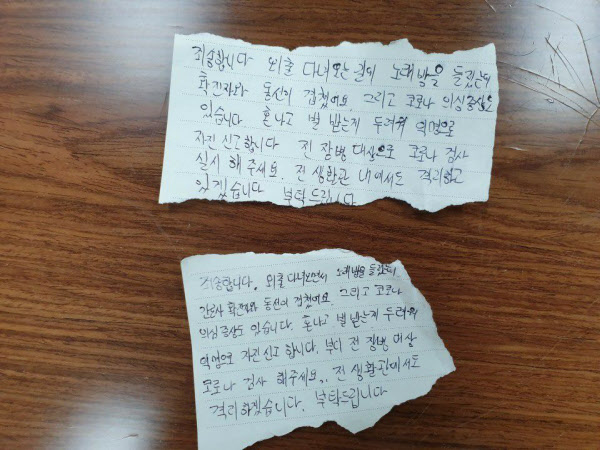 죄송합니다 외출 다녀오는 길에 노래방을 들렀는데
확진자와 동선이 겹쳤어요. 그리고 코로나 의심증상도
있습니다 혼나고 벌 받는게 두려워 익명으로
자진 신고합니다 전 장병 대상으로 코로나 검사
실시 해 주세요. 전 생활관 내에서도 격리하고
있겠습니다 부탁드립니다
죄송합니다. 외출 다녀오면서 노래방을 들렀는데
간호사 확진자와 동선이 겹쳤어요. 그리고 코로나
의심증상도 있습니다. 혼나고 벌 받는게 두려워
익명으로 자진 신고 합니다. 부디 전 장병 대상
코로나 검사 해주세요.. 전 생활관에서도
격리하겠습니다. 부탁드립니다